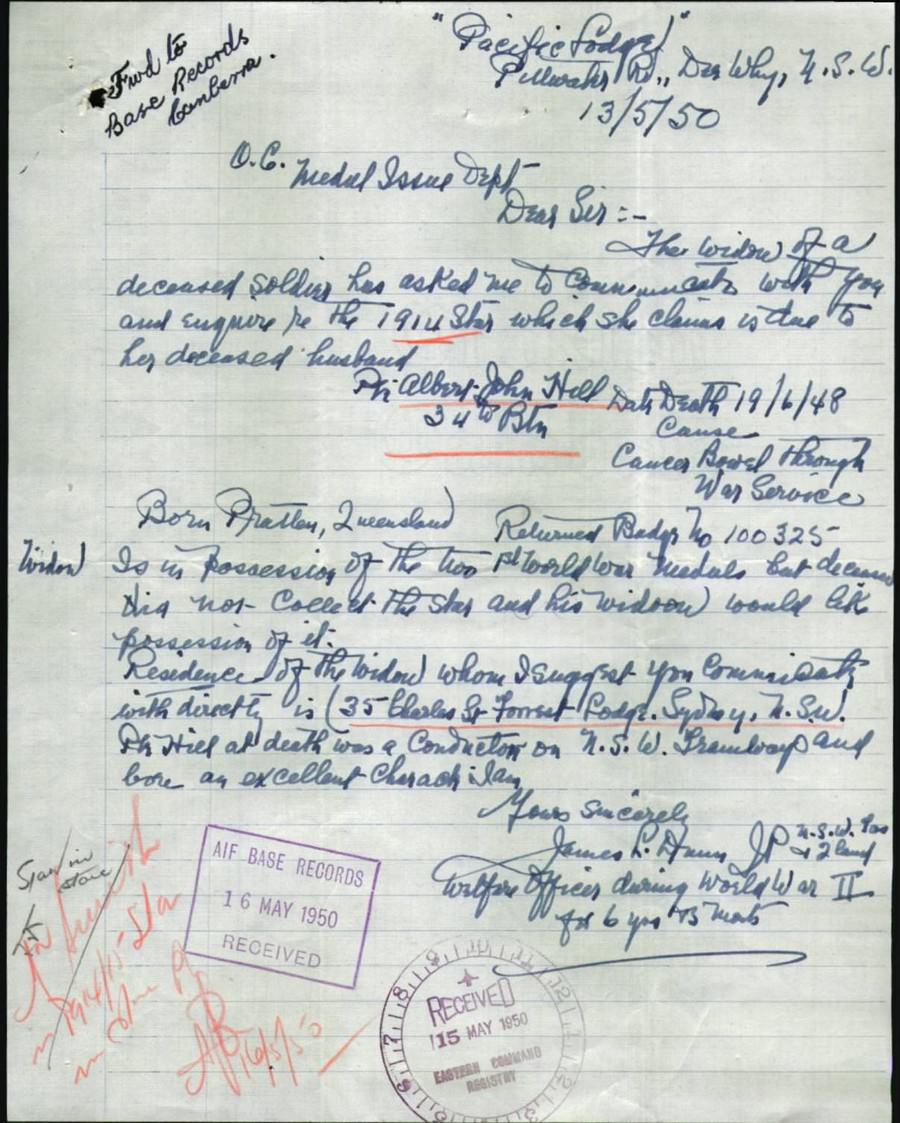 "Pacific Lodge"
Pittwater Rd., Dee Why, N.S.W.
13/5/50
Fwd to
Base Records
Canberra.
O.C. Medal Issue Dept
Dear Sir :-
The widow of a
deceased soldier has asked me to communicate with you
and enquire re the 1914 Star which she claims is due to
her deceased husband
Pte Albert John Hill Date Death 19/6/48
34th Btn Cause
Cancer Bowel through
War Service
Born Pratten, Queensland Returned Badge No 100325
Widow Is in possession of the two 1st World War medals but
did not collect the star and his widow would like
possession of it.
Residence of the widow whom I suggest you communicate
with directly is (35 Charles St Forest Lodge. Sydney, N.S.W.
Pte Hill at death was a Conductor on N.S.W. Tramways and
bore an excellent
Yours sincerely
James L. JP N.S.W.
Welfare Officer during World War II
for 6 yrs
Star in
store
1914/15 Star
in store
16/5/50
AIF BASE RECORDS
16 MAY 1950
RECEIVED
RECEIVED
15 MAY 1950
EASTERN COMMAND
REGISTRY
6 7 8 9 10 11 12